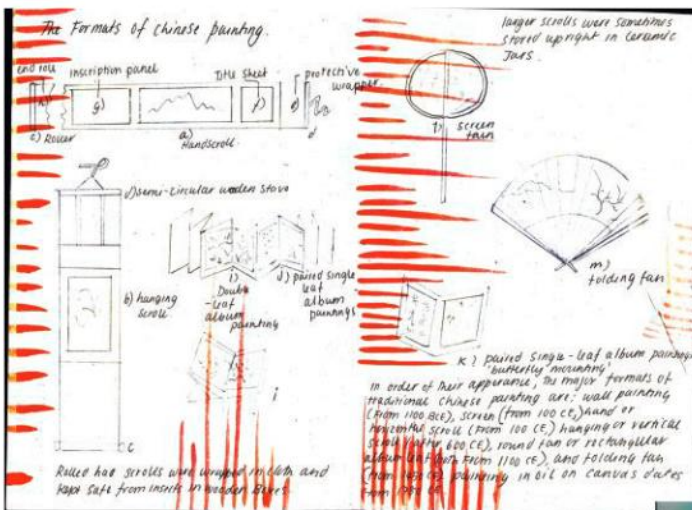 The Formats of Chinese painting.
end role
Inscription panel
Title Sheet
protective
wrapper.
h)
g)
f)
e)
d
c) Roller
a)
Handscroll.
semi-circular wooden stave
b) hanging
scroll
i)
Double
-leaf
album
painting
j) paired single
leaf
album
paintings
i
c
Rolled
scrolls were wrapped in cloth and
kept safe from insects in wooden Boxes
larger scrolls were sometimes
stored upright in ceramic
Jars.
screen
m)
folding fan
paired single-leaf album paintings
'butterfly mounting'
in order of their
the major formats of
traditional Chinese painting are; wall painting
(From 1100 BCE), screen (from 100 CE,) hand or
horizontal scroll (From 100 CE,) hanging or vertical
scroll (after 600 CE), round fan or rectangular
album leaf (both From 1100 CE), and folding fan
painting in oil on canvas dates